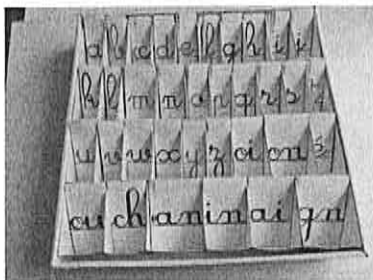 a b c d e f g h i j
k l m n o p q r s t
u v w x y z oi on
ou ch an in ai gn